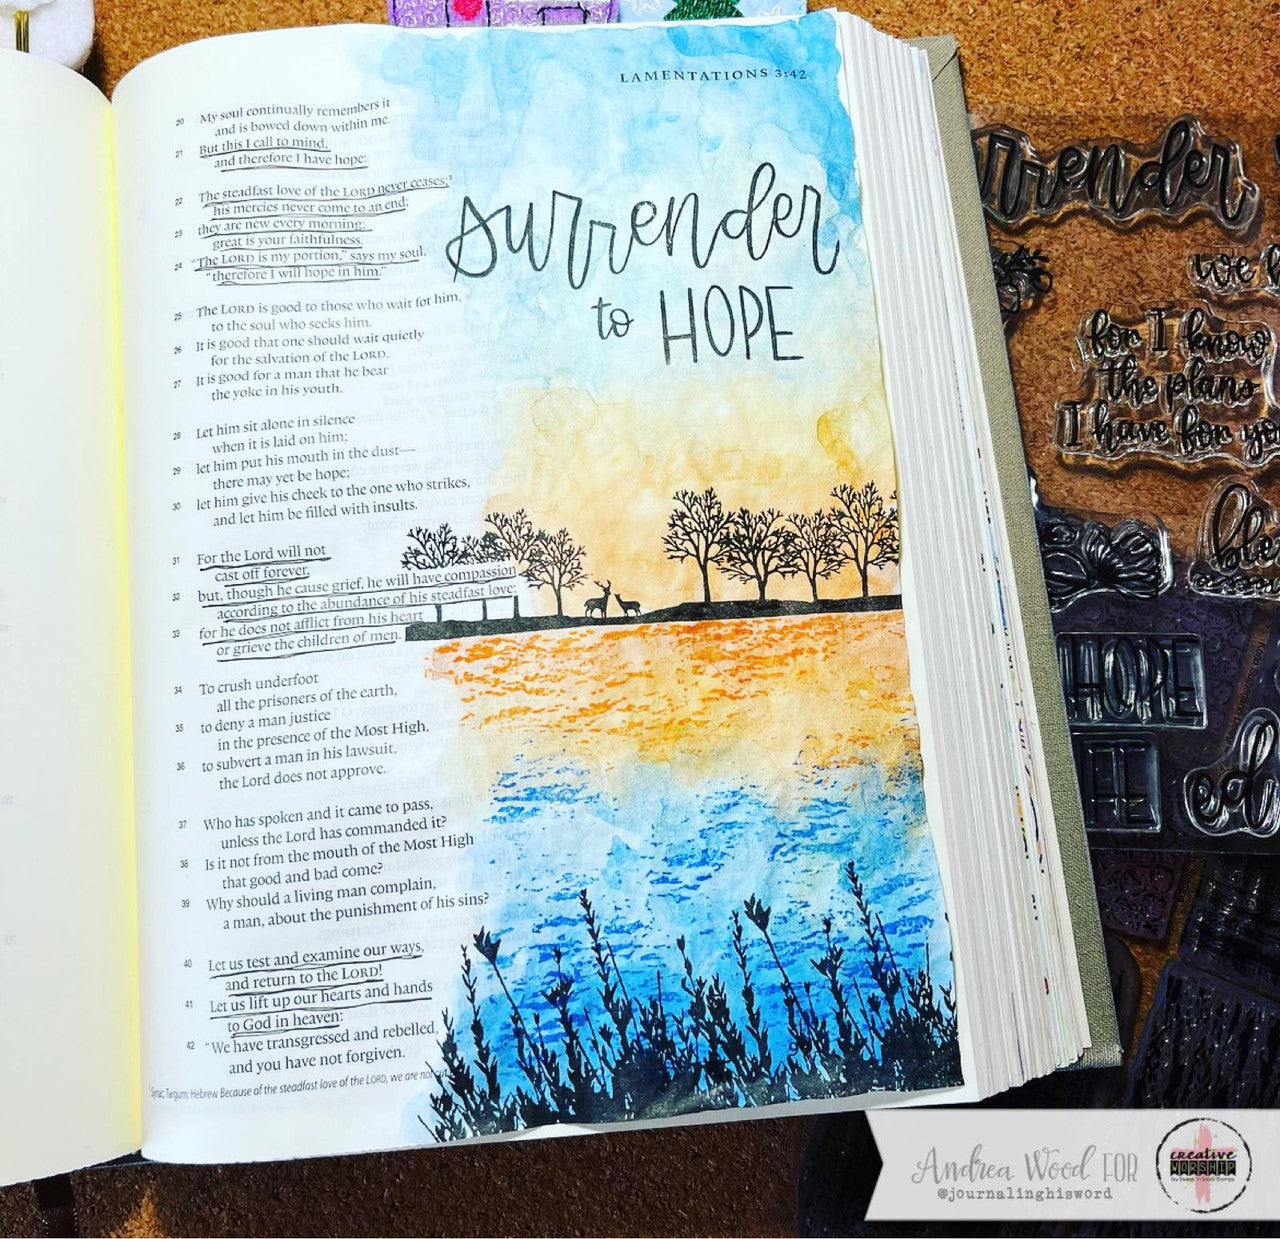 LAMENTATIONS 3:42
20 My soul continually remembers it
and is bowed down within me.
21 But this I call to mind,
and therefore I have hope:
22 The steadfast love of the LORD never ceases;
his mercies never come to an end;
23 they are new every morning;
great is your faithfulness.
24 “The LORD is my portion,” says my soul,
“therefore I will hope in him.”
25 The LORD is good to those who wait for him,
to the soul who seeks him.
26 It is good that one should wait quietly
for the salvation of the LORD.
27 It is good for a man that he bear
the yoke in his youth.
28 Let him sit alone in silence
when it is laid on him;
29 let him put his mouth in the dust—
there may yet be hope;
30 let him give his cheek to the one who strikes,
and let him be filled with insults.
31 For the Lord will not
cast off forever,
32 but, though he cause grief, he will have compassion
according to the abundance of his steadfast love;
33 for he does not afflict from his heart
or grieve the children of men.
34 To crush underfoot
all the prisoners of the earth,
35 to deny a man justice
in the presence of the Most High,
36 to subvert a man in his lawsuit,
the Lord does not approve.
37 Who has spoken and it came to pass,
unless the Lord has commanded it?
38 Is it not from the mouth of the Most High
that good and bad come?
39 Why should a living man complain,
a man, about the punishment of his sins?
40 Let us test and examine our ways,
and return to the LORD!
41 Let us lift up our hearts and hands
to God in heaven:
42 “We have transgressed and rebelled,
and you have not forgiven.
Syriac, Targum; Hebrew Because of the steadfast love of the LORD, we are not cut
surrender
to HOPE
surrender
we
for I know
the plans
I have for
HOPE
Andrea Wood FOR
@journalinghisword
creative
WORSHIP
by Sweet 'n Sassy Stamps